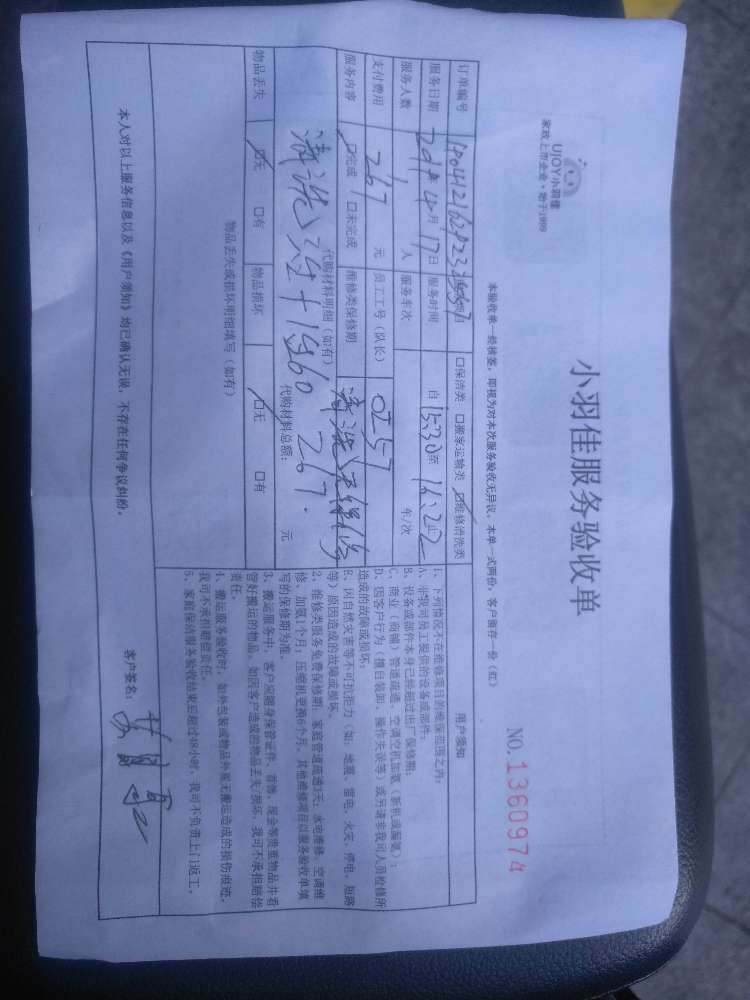 UJOY小羽佳
家政上市企业·始于1999
小羽佳服务验收单
NO.1360974
本验收单一经核签，即视为对本次服务验收无异议，本单一式两份，客户留存一份（红）
订单编号
服务类别 口保洁类 口搬家运输类 口维修清洗类
服务日期 年4月17日 服务时间 自15:30至
服务人数 1 人 服务车次 车/次
支付费用 267 元 员工工号（队长） 0257
服务内容 口完成 口未完成 维修类保修期 清洗不保修
代购材料明细（如有）
清洗 267.
代购材料总额： 元
物品丢失 口无 口有 物品损坏 口无 口有
物品丢失或损坏明细填写（如有）
用户须知
1、下列情况不在维修项目的维保范围之内：
A、非我司员工提供的设备或部件；
B、设备或部件本身已经超过出厂保修期；
C、商业（商铺）管道疏通、空调空机加氨（新机或漏氨）；
D、因客户行为（擅自装卸、操作失误等）或另请非我司人员检修所
造成的故障或损坏；
E、因自然灾害等不可抗拒力（如：地震、雷电、火灾、停电、短路
等）原因造成的故障或损坏。
2、维修类服务免费保修期：家庭管道疏通3天；水电维修、空调维
修、加氨1个月；压缩机更换6个月，其他维修项目以服务验收单填
写的保修期为准。
3、搬运服务中，客户应随身保管证件、首饰、现金等贵重物品并看
管好搬运的物品，如因客户造成的物品丢失/损坏，我司不承担赔偿
责任。
4、搬运服务验收时，如外包装或物品外观无搬运造成的损伤痕迹，
我司不承担赔偿责任。
5、家庭保洁服务验收结束后超过48小时，我司不负责上门返工。
本人对以上服务信息以及《用户须知》均已确认无误，不存在任何争议纠纷。
客户签名：